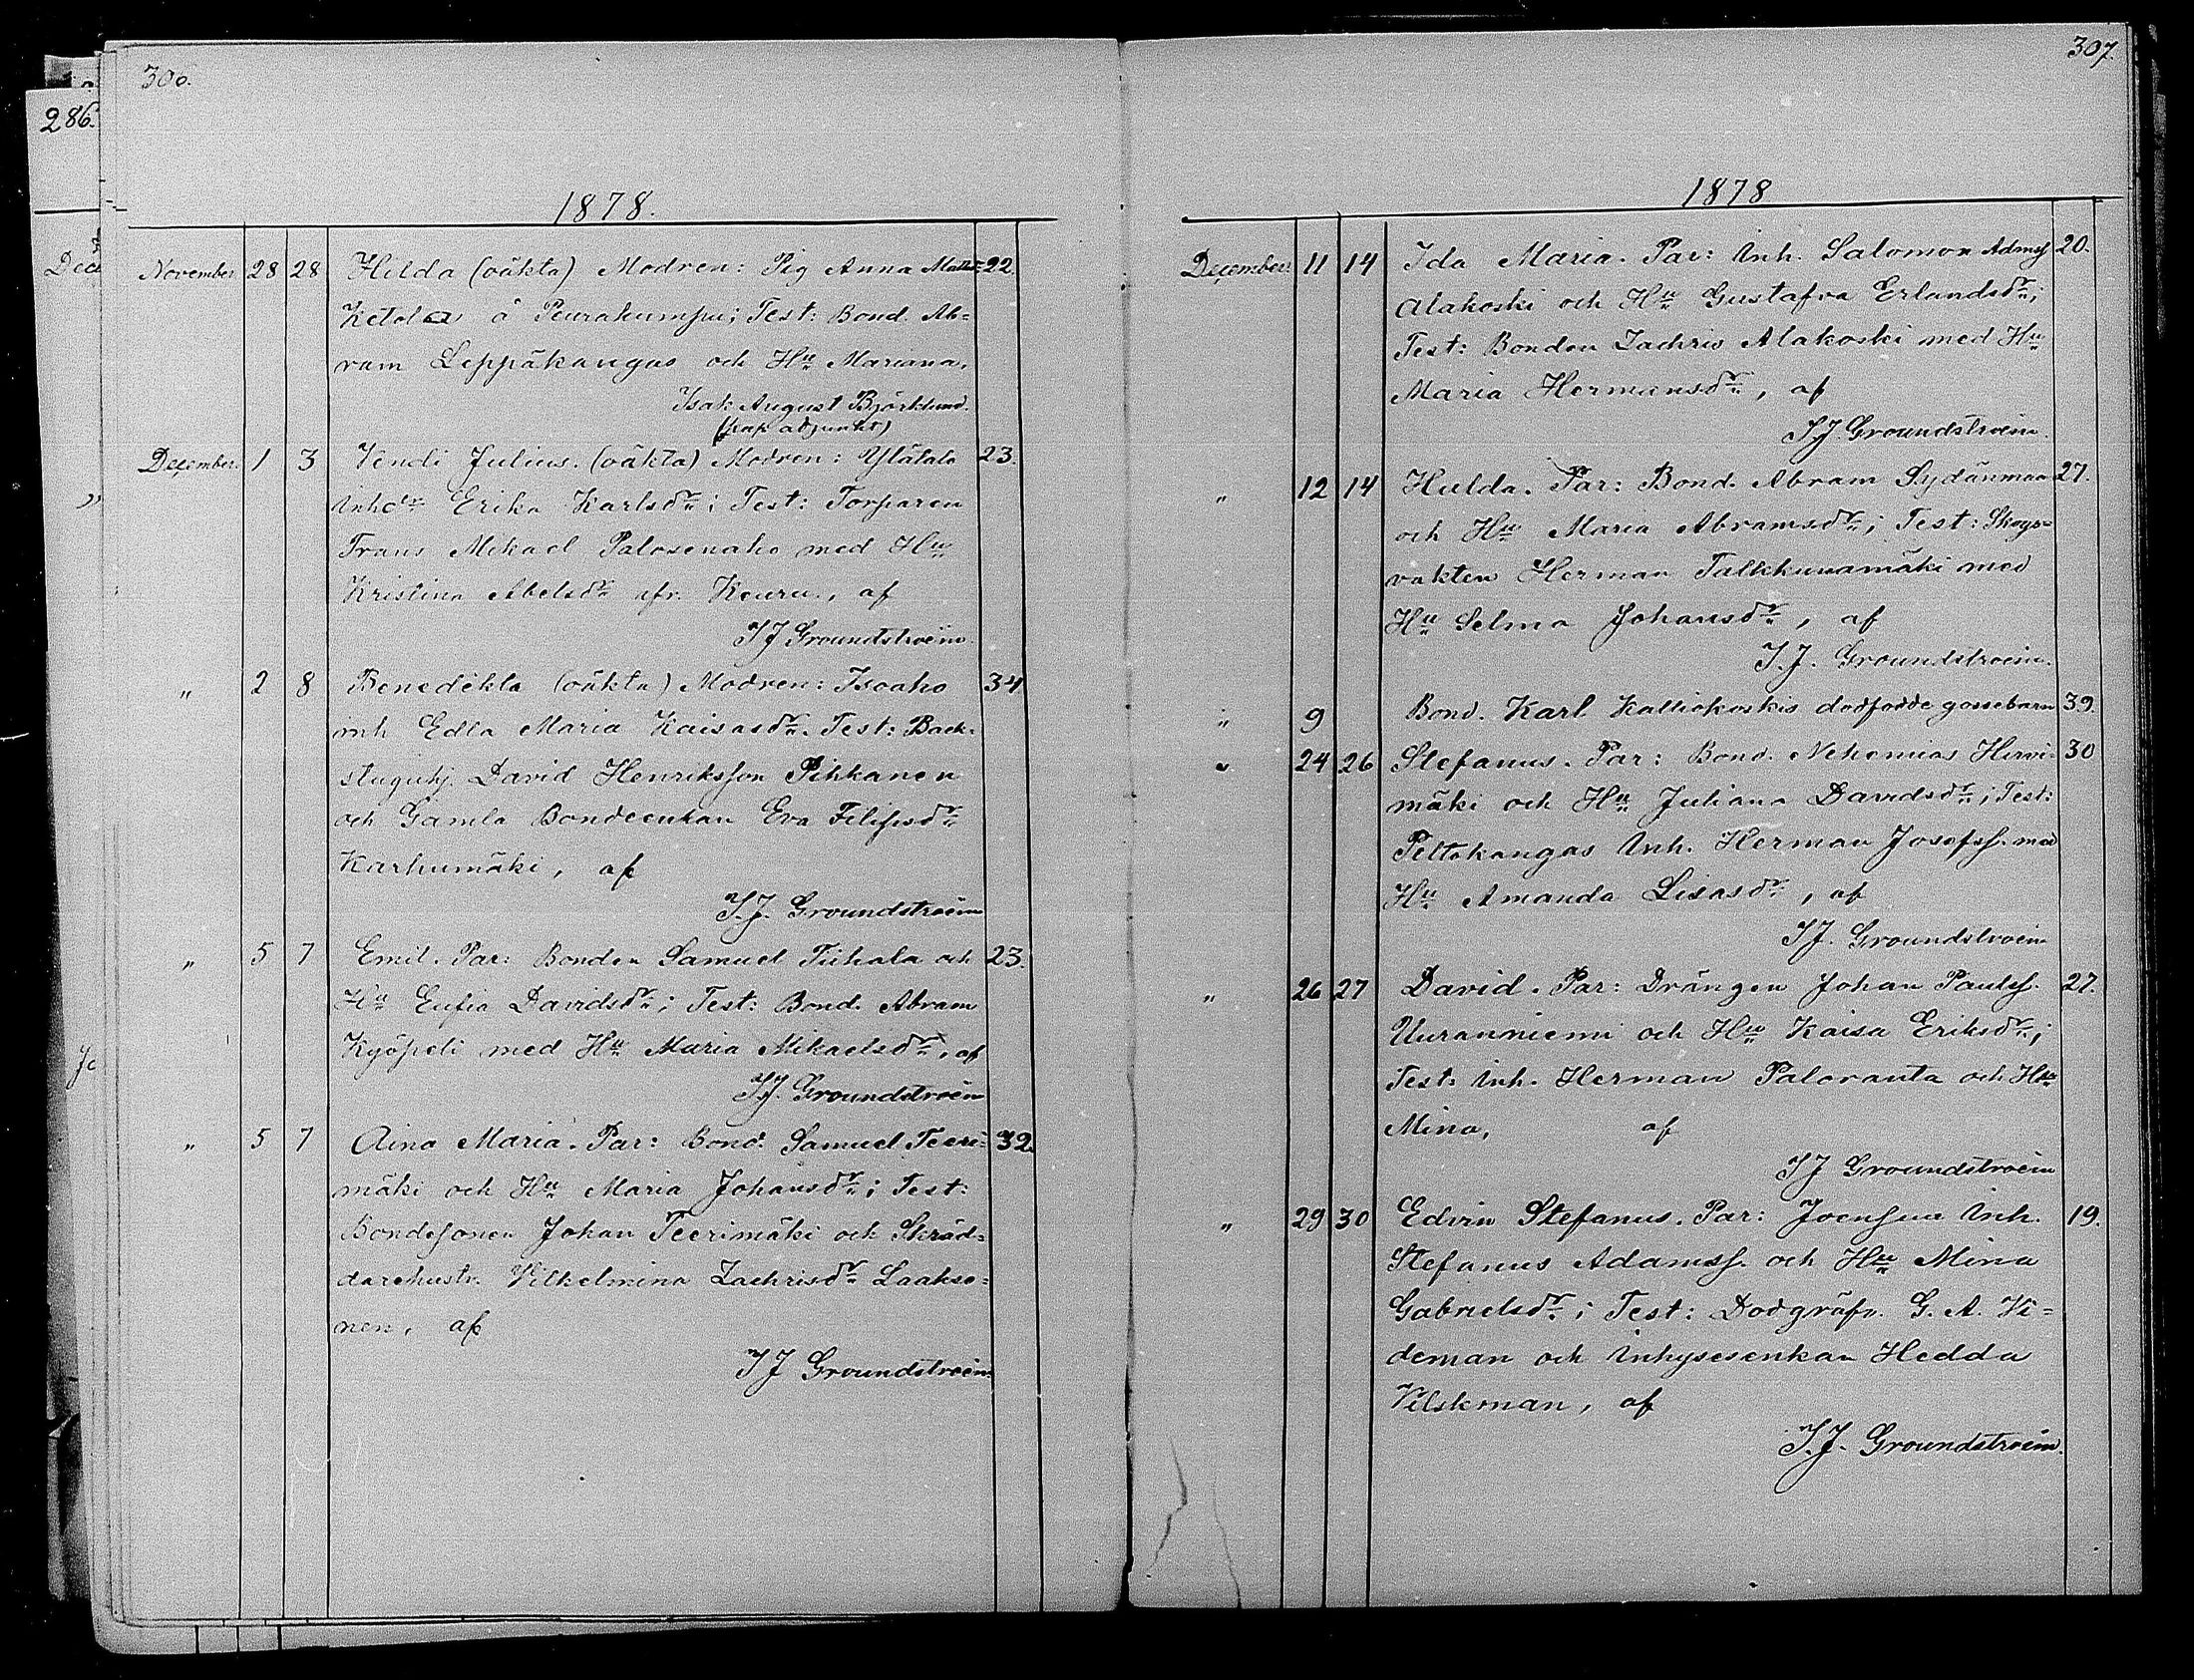 306.
286.
1878.
Dece
November 28 28 Hilda (oäkta) Modren: Pig Anna Matts= 22.
Ketola å Peurakumpu; Test: Bond. Ab=
ram Leppäkangas och Hu Mariana,
Isak August Björklund.
(prap adjunkt)
December. 1 3 Vendi Julius. (oäkta) Modren: Ylätalo 23.
Inhdr Erika Karlsdr; Test: Torparen
Frans Mikael Palosenaho med Hu
Kristina Abelsdr ifr. Keuru, af
I J Groundstroëm.
" 2 8 Benedikta (oäkta) Modren: Isoaho 34
inh Edla Maria Kaisasdr. Test: Back-
stuguhj. David Henriksson Pihkanen
och Gamla Bondeenkan Eva Filipsdr
Karhumäki, af
I. J. Groundstroëm
" 5 7 Emil. Par: Bonden Samuel Tiihala och 23.
Hu Eufia Davidsdr; Test: Bond. Abram
Kyöpeli med Hu Maria Mikaelsdr, af
I J. Groundstroëm
" 5 7 Aina Maria. Par: Bond. Samuel Teeri= 32.
mäki och Hu Maria Johansdr; Test:
Bondesonen Johan Teerimäki och Skräd=
darehustr. Vilhelmina Zachrisdr Laakso=
nen, af
I J Groundstroëm
307.
1878
December. 11 14 Ida Maria. Par: Inh. Salomon Adamss 20.
Alakoski och Hu Gustafva Erlandsdr;
Test: Bonden Zachris Alakoski med Hu
Maria Hermansdr, af
I J. Groundstroëm.
" 12 14 Hulda. Par: Bond. Abram Sydänmaa 27.
och Hu Maria Abramsdr; Test: Skogs=
vakten Herman Talkkunamäki med
Hu Selma Johansdr, af
I. J. Groundstroëm.
" 9 Bond. Karl Kalliokoskis dödfödde gossebarn 39.
" 24 26 Stefanus. Par: Bond. Nehemias Hirvi- 30
mäki och Hu Juliana Davidsdr; Test:
Peltokangas Inh. Herman Josefss. med
Hu Amanda Lisasdr, af
I J. Groundstroëm
" 26 27 David. Par: Drängen Johan Paulss. 27.
Uuranniemi och Hu Kaisa Eriksdr;
Test: Inh. Herman Paloranta och Hu
Mina, af
I J Groundstroëm
" 29 30 Edvin Stefanus. Par: Joensuu Inh. 19.
Stefanus Adamss. och Hu Mina
Gabrielsdr; Test: Dödgräfv. G. A. Vi=
deman och Inhysesenkan Hedda
Vilskman, af
I. J. Groundstroëm.